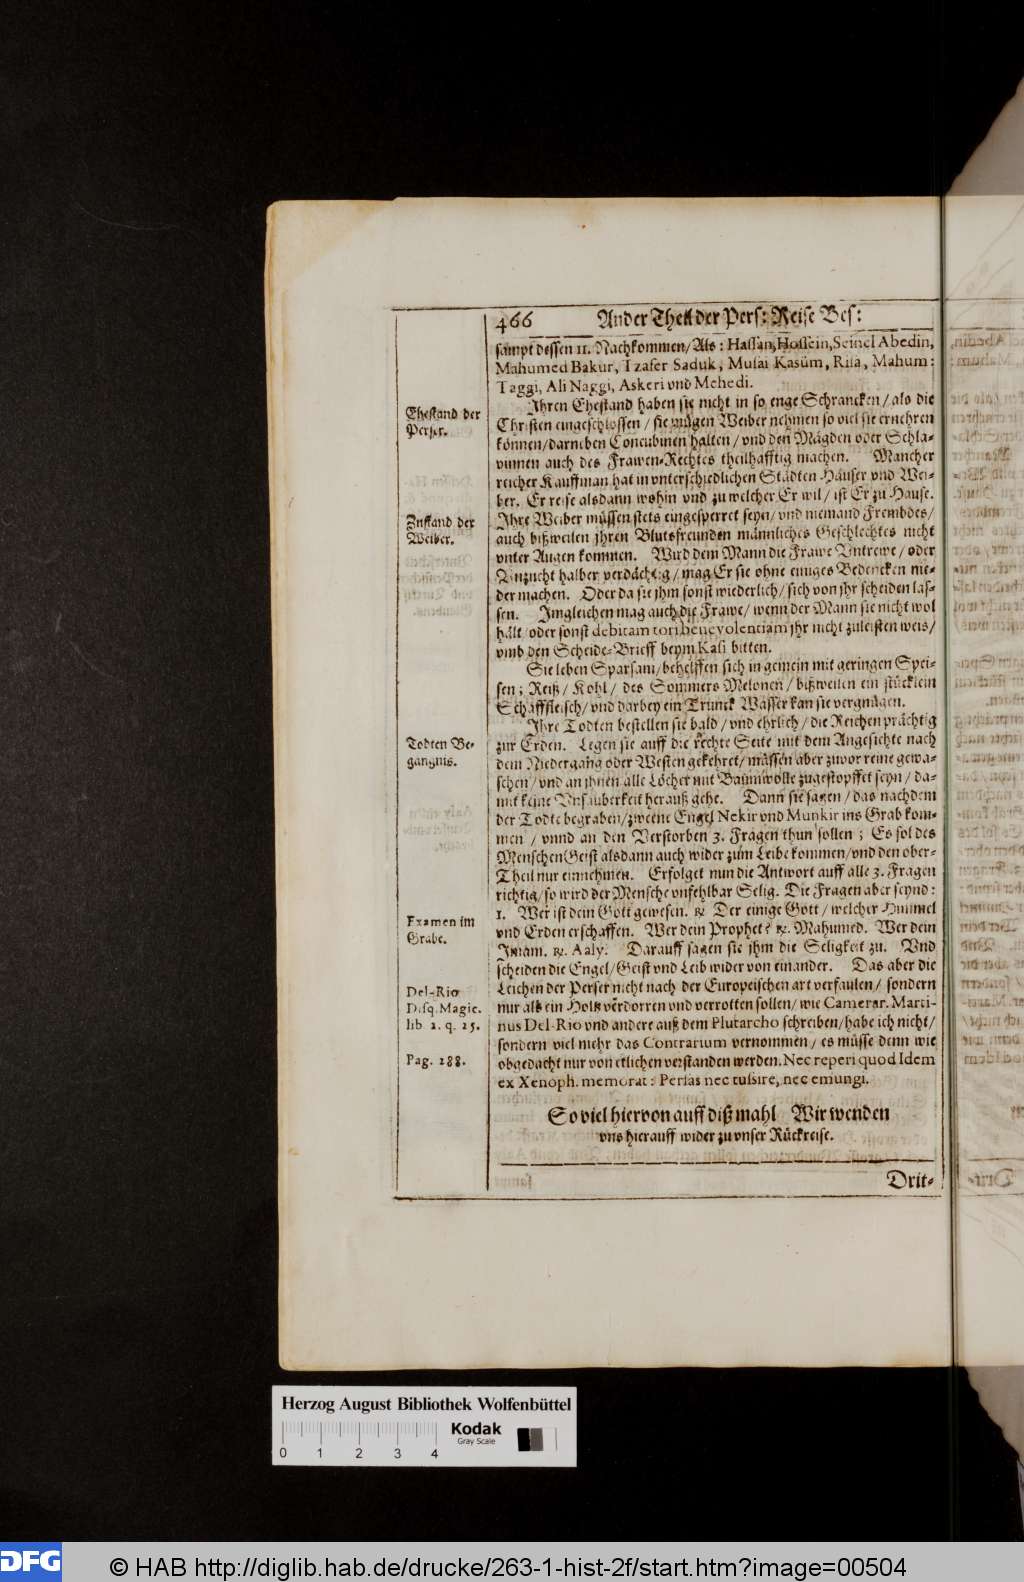 466 Ander Theil der Pers: Reise Bes:
sampt dessen 11. Nachkommen/ Als: Hassan, Hossein, Seinel Abedin,
Mahumed Bakur, Tzafer Saduk, Musai Kasüm, Risa, Mahum:
Taggi, Ali Naggi, Askeri vnd Mehedi.
Ehestand der
Perser.
Ihren Ehestand haben sie nicht in so enge Schrancken/ als die
Christen eingeschlossen/ sie mügen Weiber nehmen so viel sie ernehren
können/ darneben Concubinen halten/ vnd den Mägden oder Schla-
vinnen auch des Frawen-Rechtes theilhafftig machen. Mancher
reicher Kauffman hat in vnterschiedlichen Städten Häuser vnd Wei-
ber. Er reise alsdann wohin vnd zu welcher Er wil/ ist Er zu Hause.
Zustand der
Weiber.
Ihre Weiber müssen stets eingesperret seyn/ vnd niemand Frembdes/
auch bißweilen jhren Blutsfreunden männliches Geschlechtes nicht
vnter Augen kommen. Wird dem Mann die Frawe Vntrewe/ oder
Vnzucht halber verdächtig/ mag Er sie ohne einiges Bedencken nie-
der machen. Oder da sie jhm sonst wiederlich/ sich von jhr scheiden las-
sen. Imgleichen mag auch die Frawe/ wenn der Mann sie nicht wol
hält/ oder sonst debitam tori benevolentiam jhr nicht zuleisten weis/
vmb den Scheide-Brieff beym Kasi bitten.
Sie leben Sparsam/ behelffen sich in gemein mit geringen Spei-
sen; Reiß/ Kohl/ des Sommers Melonen/ bißweilen ein stücklein
Schaffleisch/ vnd darbey ein Trunck Wasser kan sie vergnügen.
Todten Be-
gängnis.
Ihre Todten bestellen sie bald/ vnd ehrlich/ die Reichen prächtig
zur Erden. Legen sie auff die rechte Seite mit dem Angesichte nach
dem Niedergang oder Westen gekehret/ müssen aber zuvor reine gewa-
schen/ vnd an jhnen alle Löcher mit Baumwolle zugestopffet seyn/ da-
mit keine Vnsauberkeit herauß gehe. Dann sie sagen/ das nachdem
der Todte begraben/ zweene Engel Nekir vnd Munkir ins Grab kom-
men/ vnnd an den Verstorben 3. Fragen thun sollen; Es sol des
Menschen Geist alsdann auch wider zum Leibe kommen/ vnd den ober-
Theil nur einnehmen. Erfolget nun die Antwort auff alle 3. Fragen
richtig/ so wird der Mensche vnfehlbar Selig. Die Fragen aber seynd:
Examen im
Grabe.
1. Wer ist dein Gott gewesen. ℞ Der einige Gott/ welcher Himmel
vnd Erden erschaffen. Wer dein Prophet? ℞. Mahumed. Wer dein
Imam. ℞. Aaly. Darauff sagen sie jhm die Seligkeit zu. Vnd
scheiden die Engel/ Geist vnd Leib wider von einander. Das aber die
Del-Rio
Disq. Magic.
lib 2. q. 25.
Pag. 288.
Leichen der Perser nicht nach der Europeischen art verfaulen/ sondern
nur als ein Holtz verdorren vnd verrotten sollen/ wie Camerar. Marti-
nus Del-Rio vnd andere auß dem Plutarcho schreiben/ habe ich nicht/
sondern viel mehr das Contrarium vernommen/ es müsse denn wie
obgedacht nur von etlichen verstanden werden. Nec reperi quod Idem
ex Xenoph. memorat: Persas nec tussire, nec emungi.
So viel hiervon auff diß mahl Wir wenden
vns hierauff wider zu vnser Rückreise.
Drit-
Herzog August Bibliothek Wolfenbüttel
0 1 2 3 4
Kodak
Gray Scale
DFG
© HAB http://diglib.hab.de/drucke/263-1-hist-2f/start.htm?image=00504